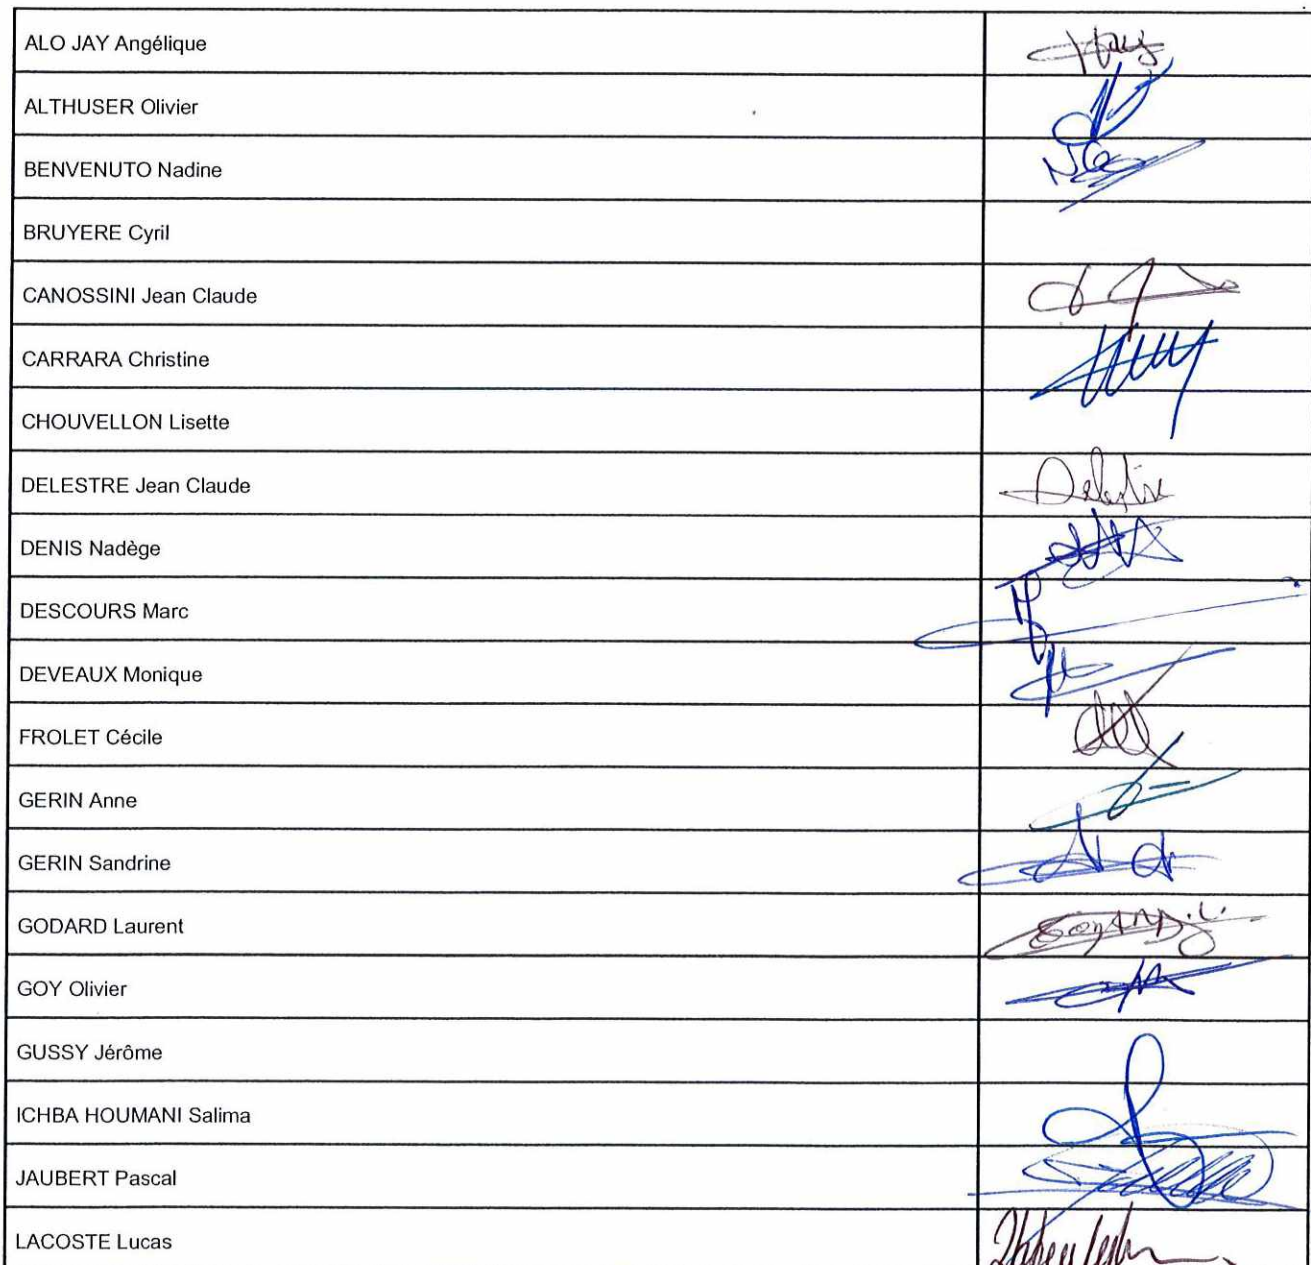 ALO JAY Angélique
ALTHUSER Olivier
BENVENUTO Nadine
BRUYERE Cyril
CANOSSINI Jean Claude
CARRARA Christine
CHOUVELLON Lisette
DELESTRE Jean Claude
Delestre
DENIS Nadège
DESCOURS Marc
DEVEAUX Monique
FROLET Cécile
GERIN Anne
GERIN Sandrine
GODARD Laurent
GOY Olivier
GUSSY Jérôme
ICHBA HOUMANI Salima
JAUBERT Pascal
LACOSTE Lucas